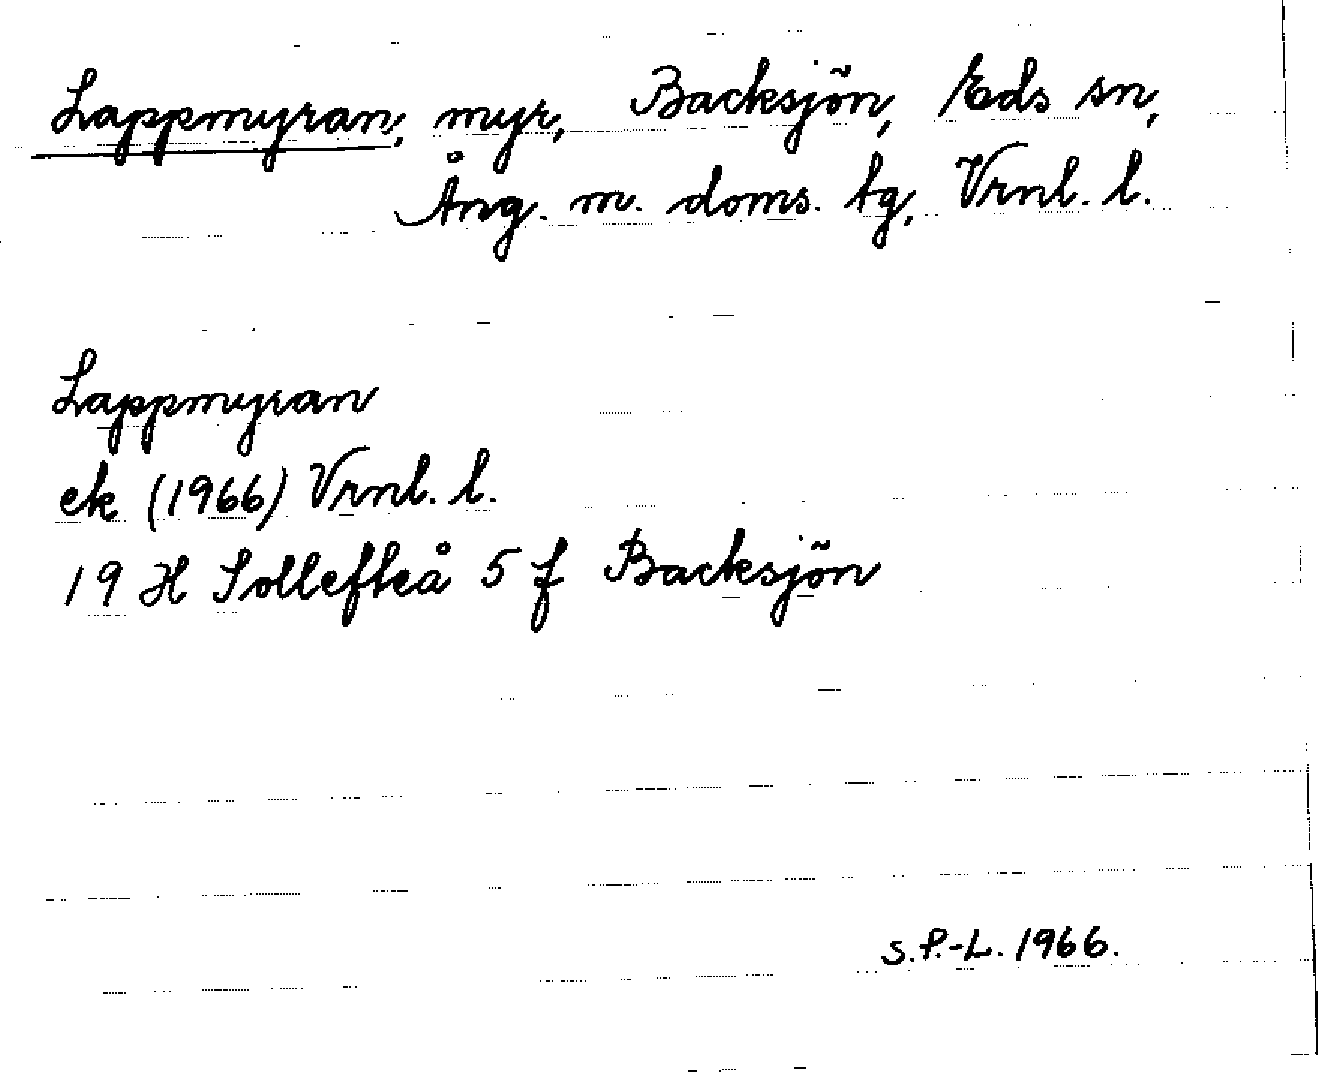 Lappmyran, myr, Backsjön, Eds sn,
Ång. m. doms. tg, Vrnl. l.
Lappmyran
ek (1966) Vrnl. l.
19 H Sollefteå 5 f Backsjön
S.P.-L. 1966.